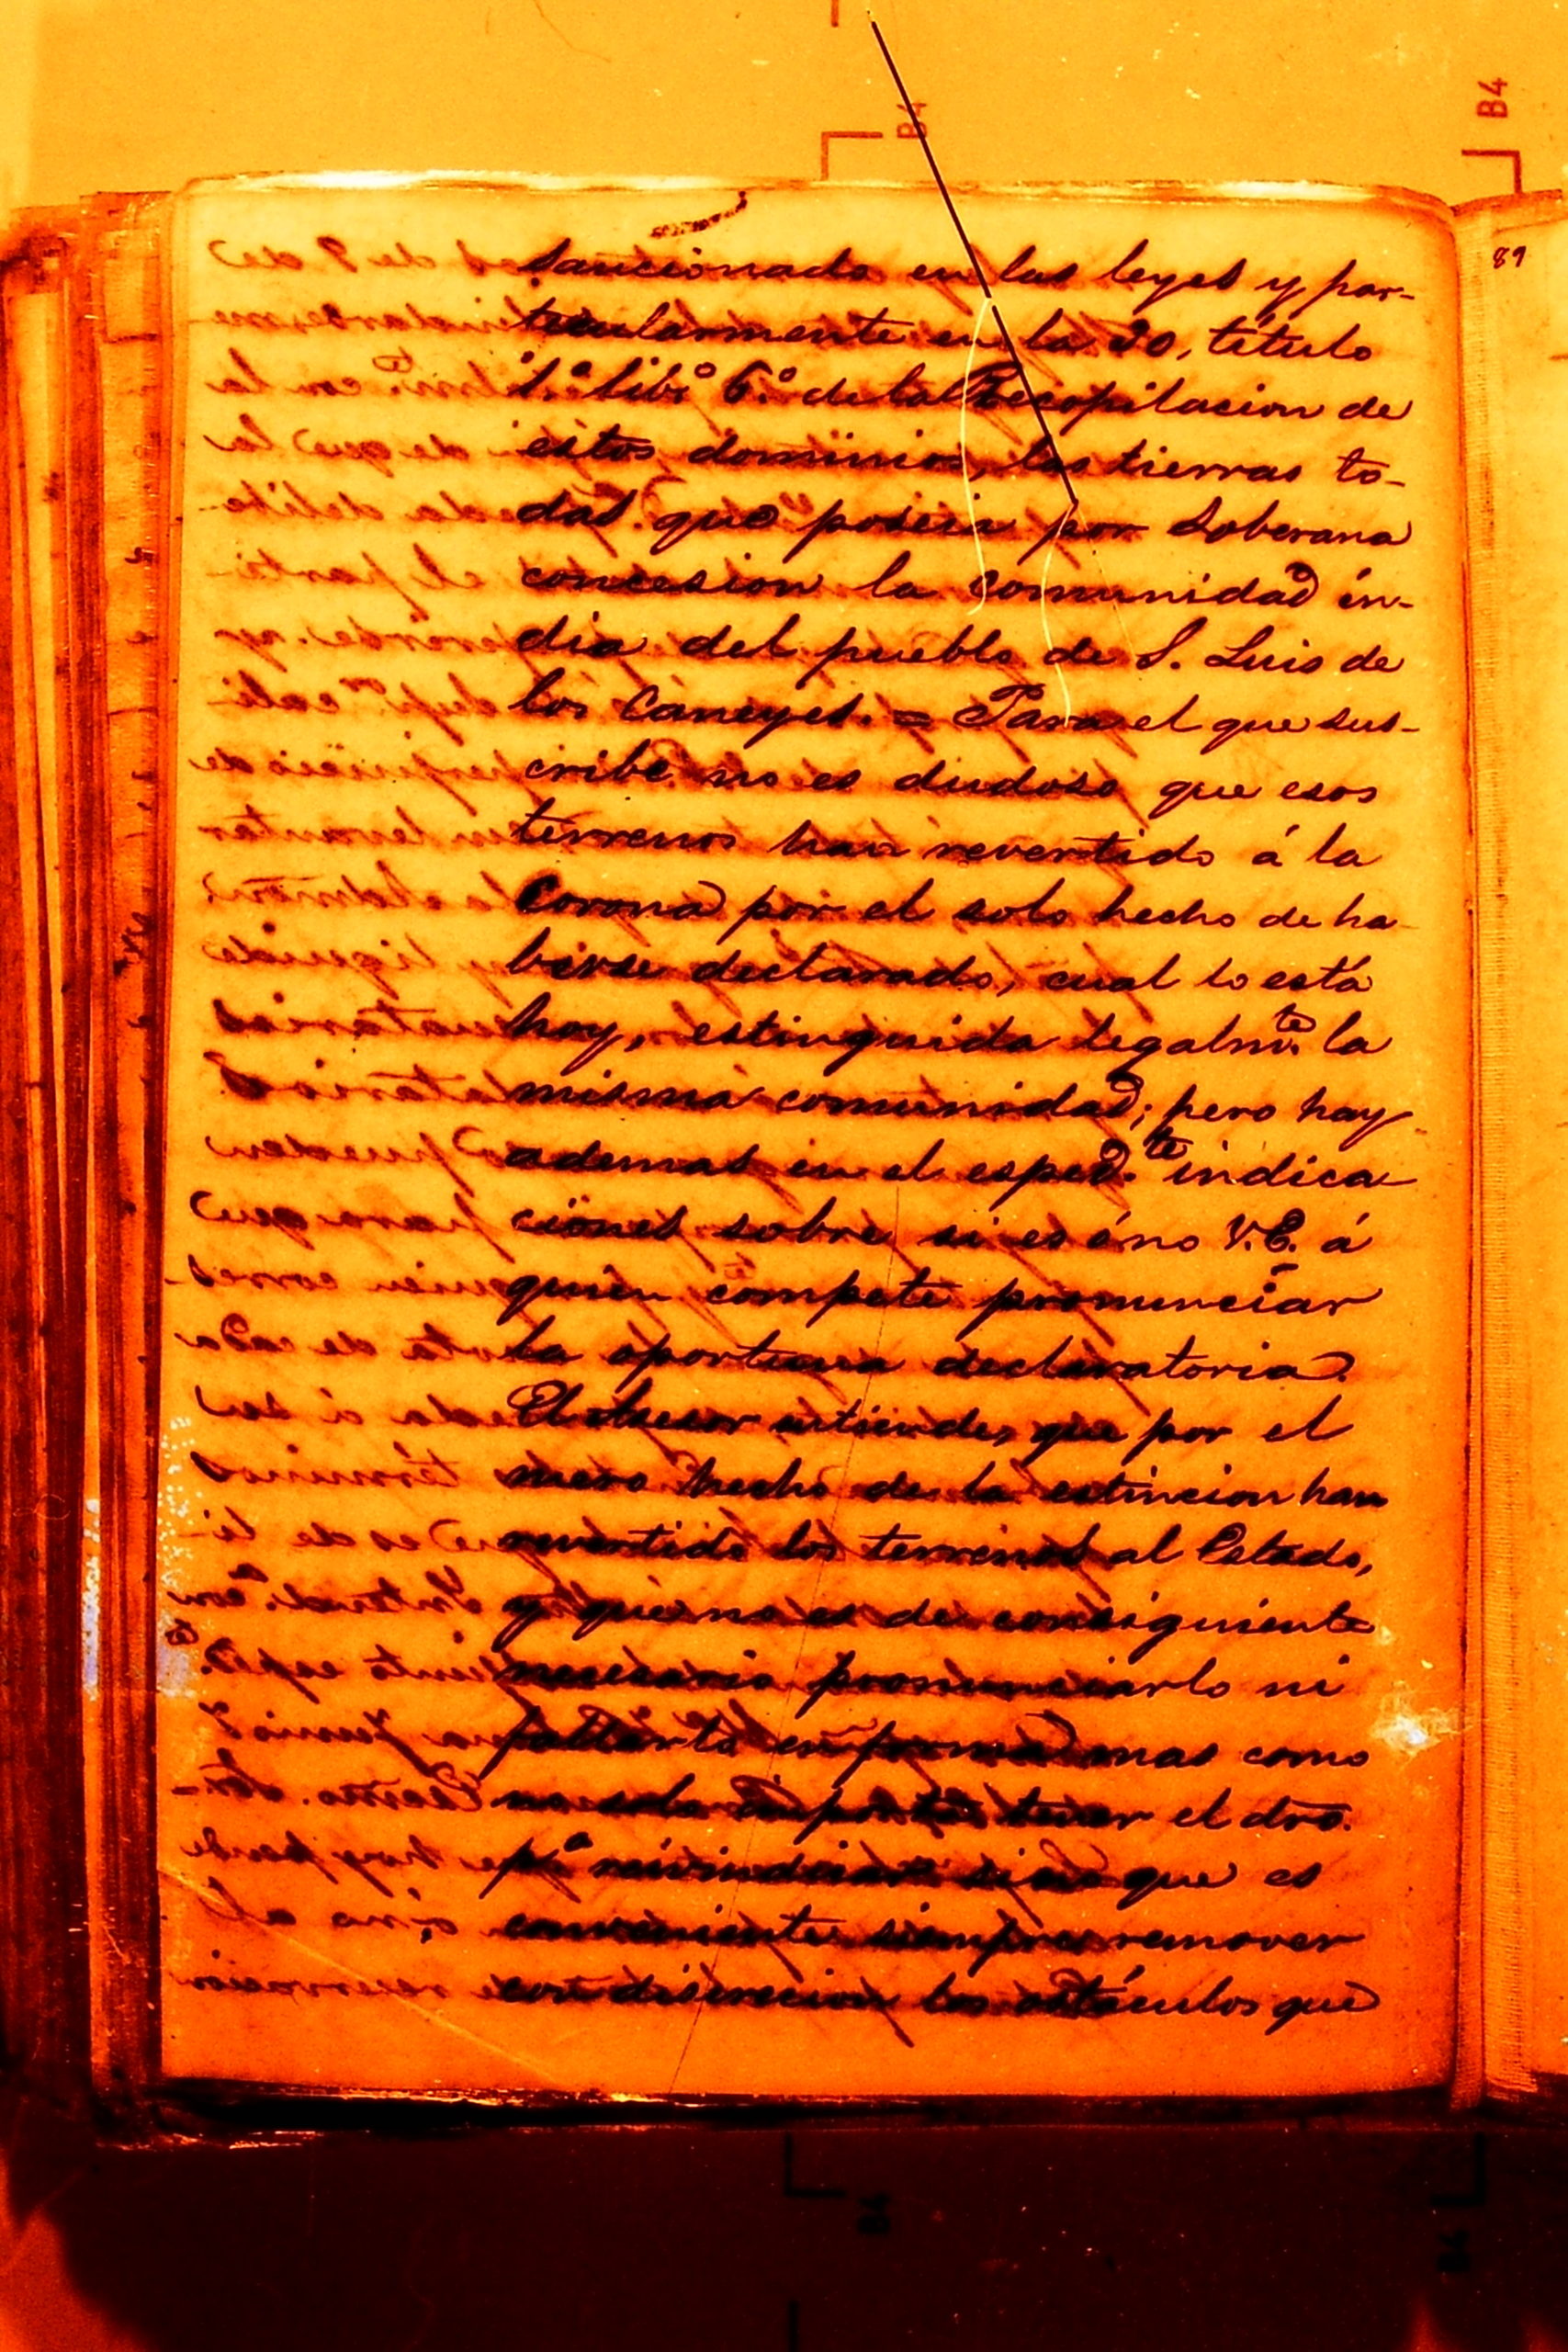 B4
B4
89
sancionado en las leyes y par-
ticularmente en la 30, título
1.º lib.º 6.º de la Recopilacion de
estos dominios, las tierras to-
das que poseia por Soberana
concesion la comunidad in-
dia del pueblo de S. Luis de
los Caneyes. = Para el que sus-
cribe no es dudoso que esos
terrenos han revertido á la
Corona por el solo hecho de ha-
berse declarado, cual lo está
hoy, estinguida legalm.te la
misma comunidad; pero hay
ademas en el esped.te indica
ciones sobre si es ó no V.E. á
quien compete pronunciar
la oportuna declaratoria.
El Asesor entiende, que por el
mero hecho de la estincion han
revertido los terrenos al Estado,
y que no es de consiguiente
necesario pronunciarlo ni
fallarlo en forma mas como
no solo importa tener el dro.
p.a reivindicar sino que es
conveniente siempre remover
con discrecion los ostáculos que
B4
B4